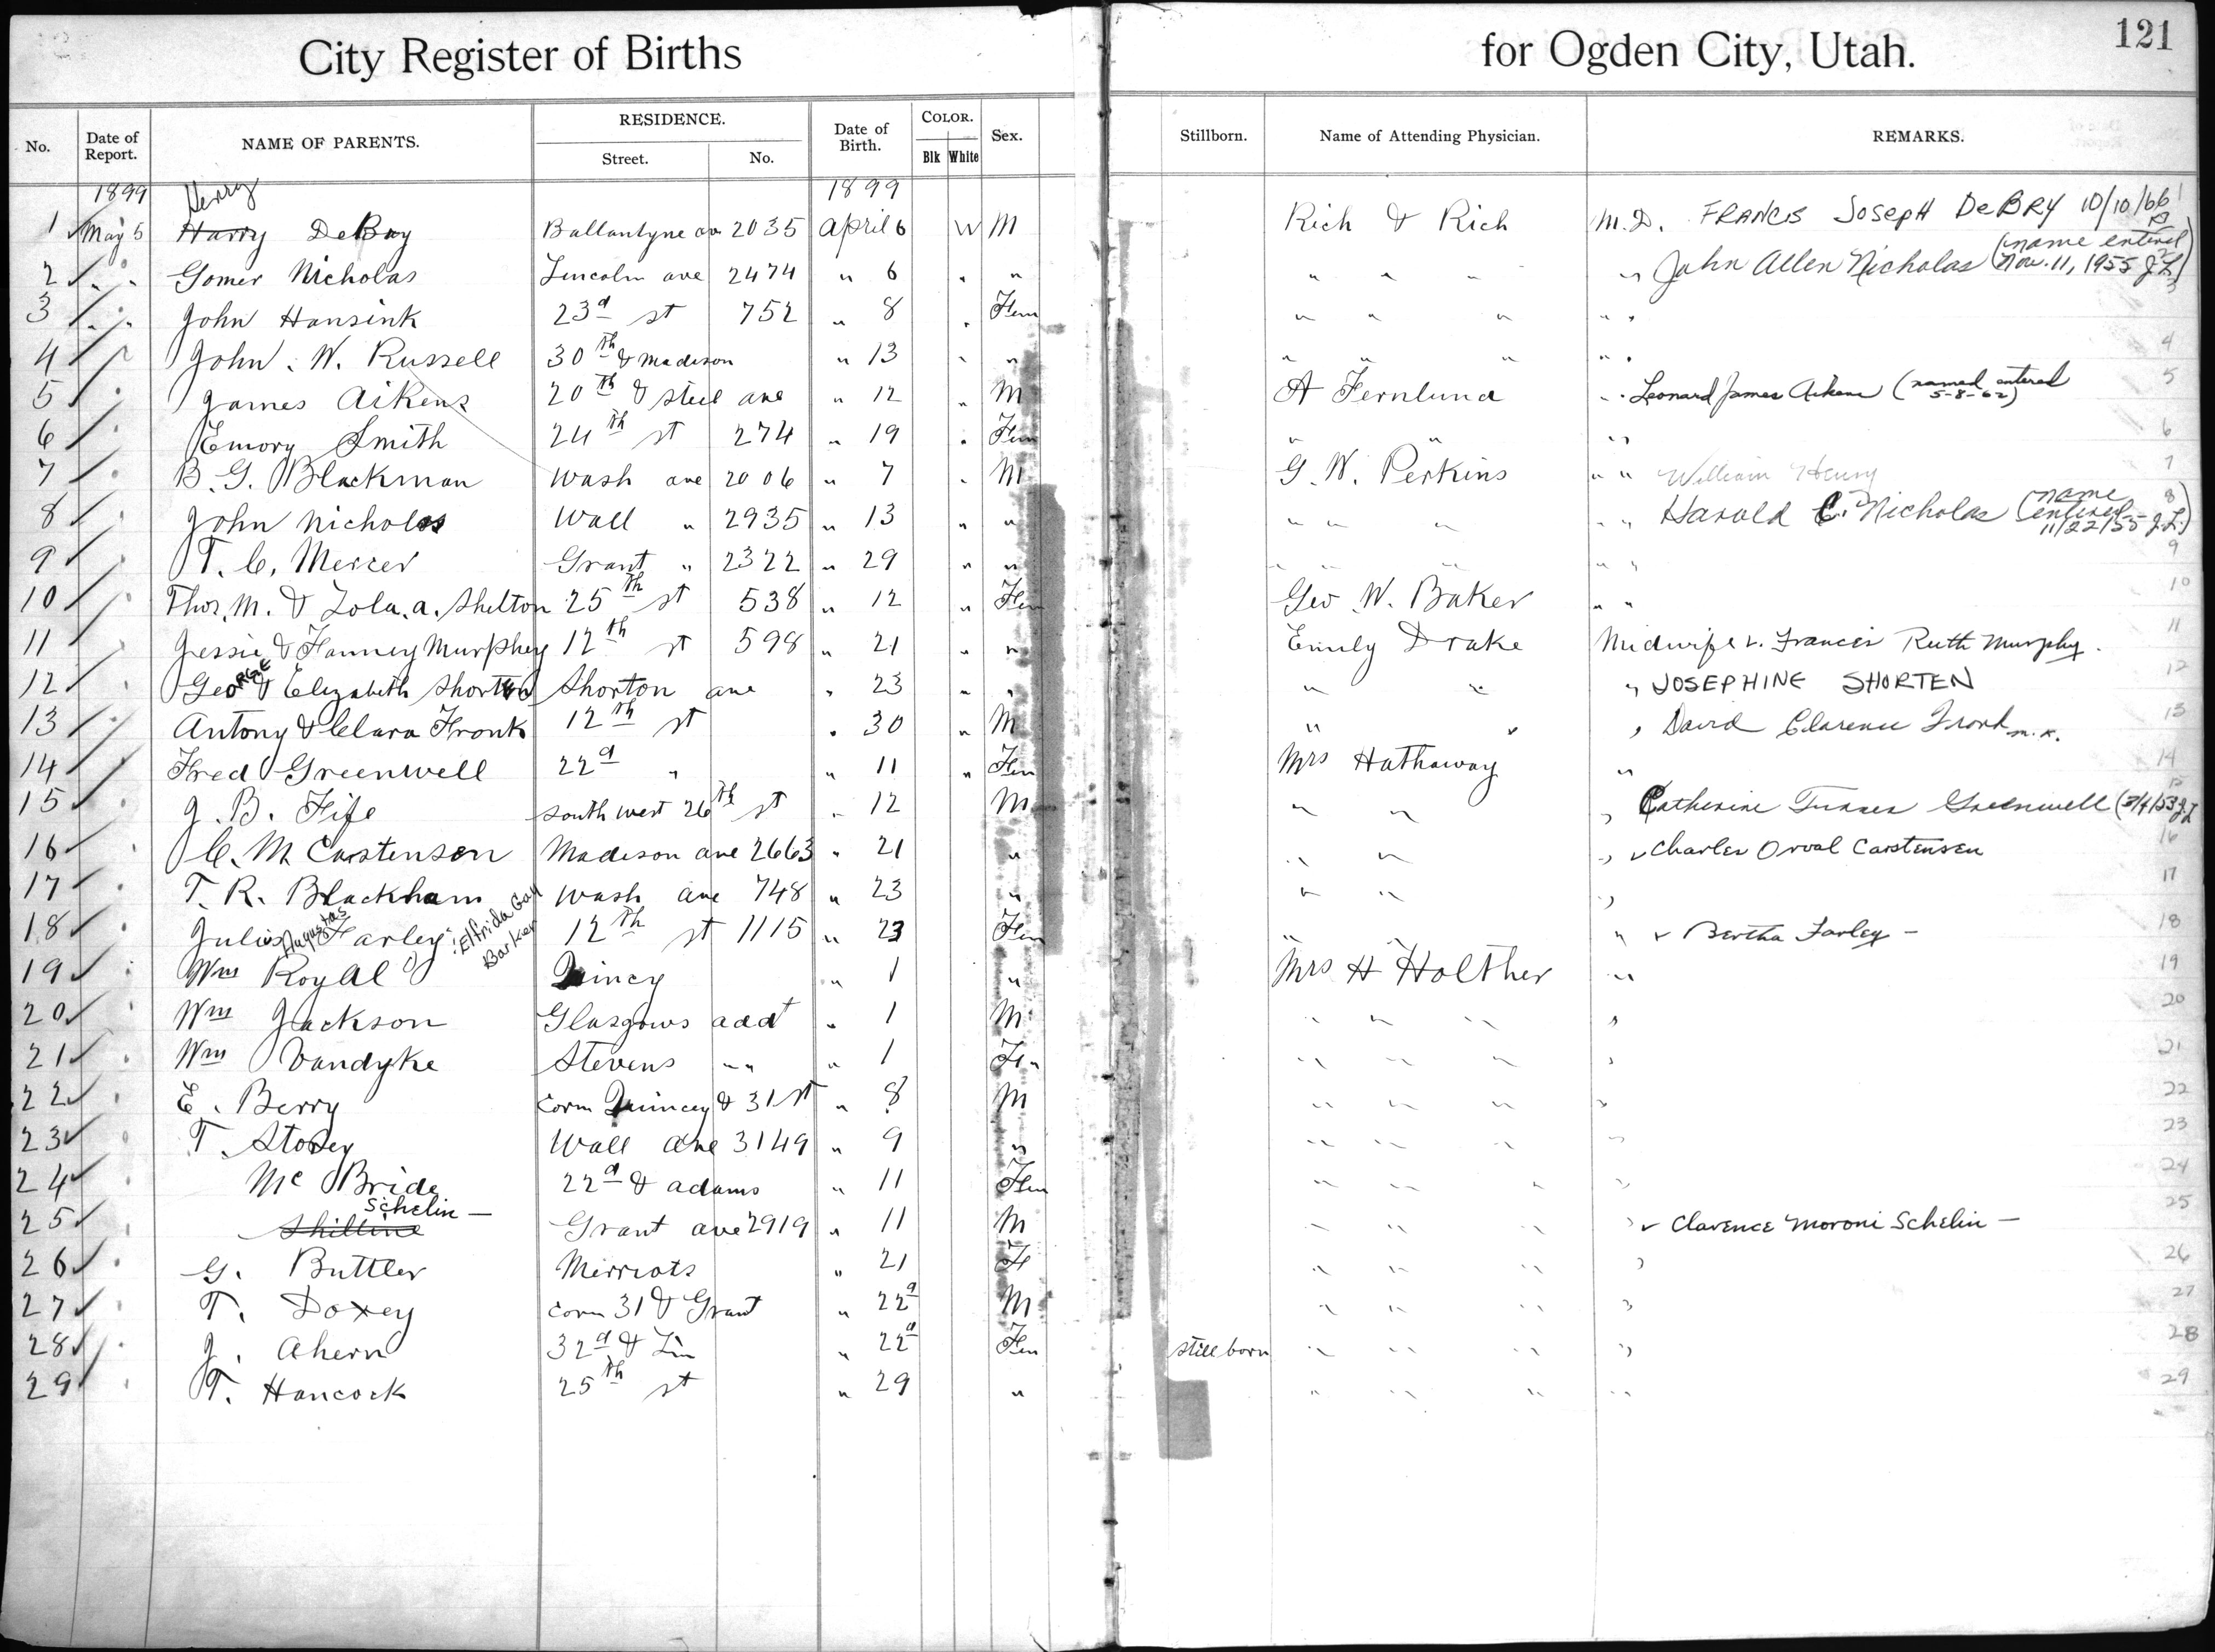 City Register of Births for Ogden City, Utah. 121
No. Date of Report. NAME OF PARENTS. RESIDENCE. Street. No. Date of Birth. COLOR. Blk White Sex. Stillborn. Name of Attending Physician. REMARKS.
1899 Henry 1899
1 May 5 Harry DeBry Ballantyne av 2035 April 6 W M Rich & Rich M.D. FRANCIS JOSEPH DeBRY 10/10/66 1
2 " " Gomer Nicholas Lincoln ave 2474 " 6 " " " " " " John Allen Nicholas (name entered Nov. 11, 1955 J.L.) 2
3 " " John Hansink 23d st 752 " 8 " Fem " " " " " 3
4 " John W. Russell 30th & Madison " 13 " " " " " " " 4
5 " James Aikens 20th & steel ave " 12 " M A Fernlund " " Leonard James Aikens (named entered 5-8-62) 5
6 " Emory Smith 24th st 274 " 19 " Fem " " " " 6
7 " B. G. Blackman Wash ave 2006 " 7 " M G. W. Perkins " " William Henry 7
8 " John Nicholas Wall " 2935 " 13 " " " " " " " Harold C. Nicholas (name entered 11/22/55 J.L.) 8
9 " T. C. Mercer Grant " 2322 " 29 " " " " " " " 9
10 " Thos. M. & Zola. a. Shelton 25th st 538 " 12 " Fem Geo W. Baker " " 10
11 " Jessie & Fanney Murphey 12th st 598 " 21 " " Emily Drake Midwife v. Francis Ruth Murphy. 11
12 " George & Elizabeth Shorten Shorton ave " 23 " " " " " JOSEPHINE SHORTEN 12
13 " Antony & Clara Fronk 12th st " 30 " M " " " David Clarence Fronk m.k. 13
14 " Fred Greenwell 22d " " 11 " Fem Mrs Hathaway " 14
15 " J. B. Fife south west 26th st " 12 M " " " Catherine Turner Greenwell (3/4/53 J.L. 15
16 " C. M Carstensen Madison ave 2663 " 21 " " " " v Charles Orval Carstensen 16
17 " T. R. Blackham Wash ave 748 " 23 " " " " 17
18 " Julius Augustas Farley : Elfrida Gay Barker 12th st 1115 " 23 Fem " " v Bertha Farley - 18
19 " Wm Royal Quincy " 1 " Mrs H Holther " 19
20 " Wm Jackson Glasgows add " 1 M " " " " 20
21 " Wm Vandyke Stevens " " 1 Fem " " " " 21
22 " E. Berry Corn Quincey & 31 st " 8 M " " " " 22
23 " T. Storey Wall ave 3149 " 9 " " " " " 23
24 " Mc Bride 22d & adams " 11 Fem " " " " 24
25 " Schelin — Shilline Grant ave 2919 " 11 M " " " " v Clarence Moroni Schelin — 25
26 " G. Buttler Merriots " 21 F " " " " 26
27 " T. Doxey corn 31 & Grant " 22d M " " " " 27
28 " J. Ahern 32d & Lin " 22d Fem still born " " " " 28
29 " T. Hancock 25th st " 29 " " " " " 29